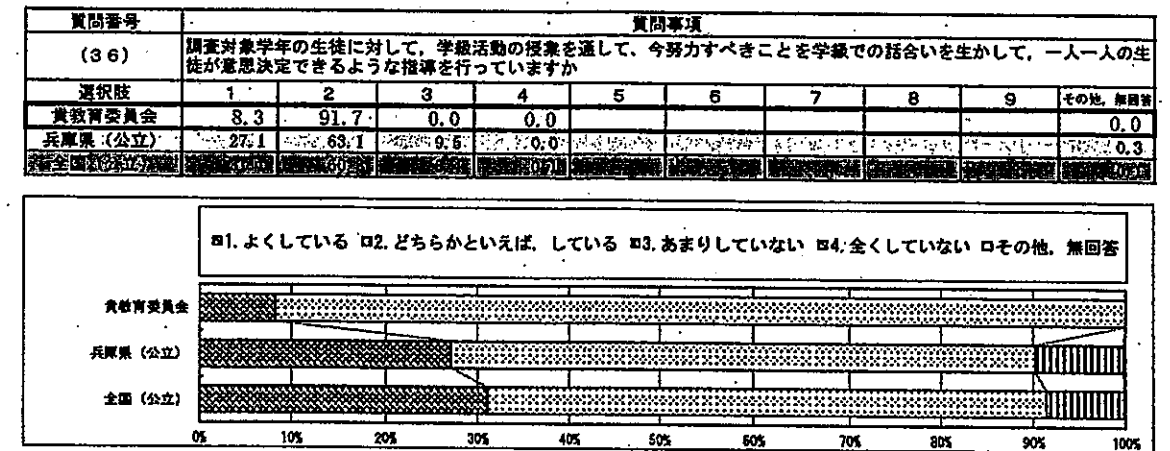 質問番号 質問事項
(36) 調査対象学年の生徒に対して，学級活動の授業を通して、今努力すべきことを学級での話合いを生かして，一人一人の生
徒が意思決定できるような指導を行っていますか
選択肢 1 2 3 4 5 6 7 8 9 その他，無回答
貴教育委員会 8.3 91.7 0.0 0.0 0.0
兵庫県（公立） 27.1 63.1 9.5 0.0 0.3
全国（公立）
1.よくしている 2.どちらかといえば，している 3.あまりしていない 4.全くしていない その他，無回答
貴教育委員会
兵庫県（公立）
全国（公立）
0% 10% 20% 30% 40% 50% 60% 70% 80% 90% 100%